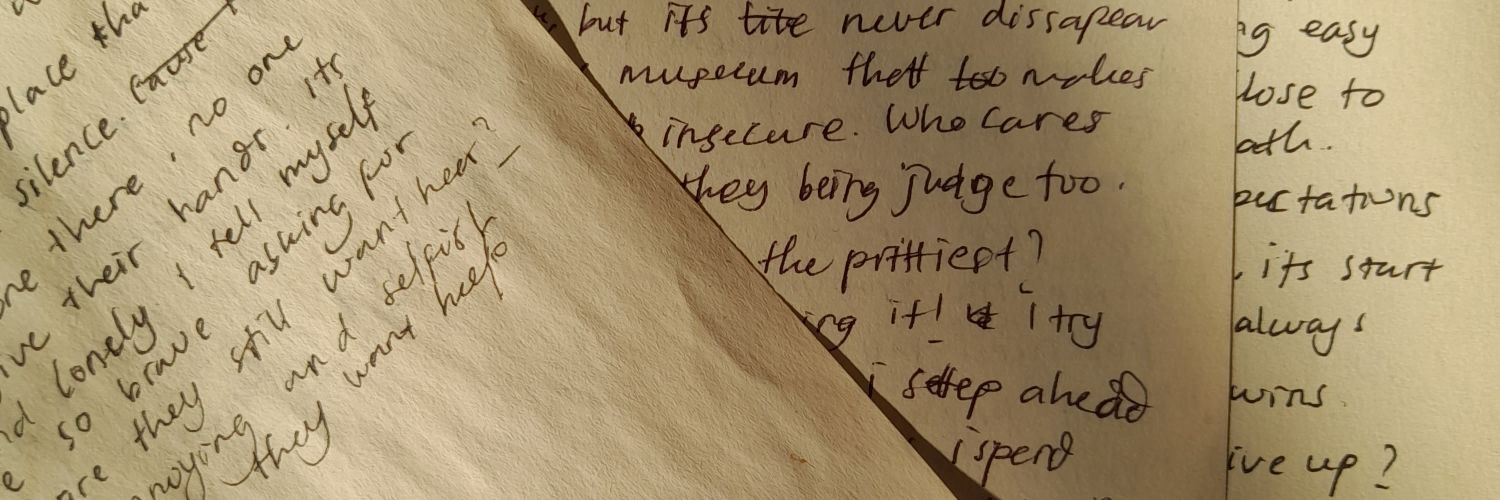 place tha
silence. cause
one there, no one
ive their hands. its
nd lonely. i tell myself
e so brave asking for
are they still want hear?
nnoying and selfish
they want help
but its tite never dissapear
museum thatt too makes
insecure. Who cares
they being judge too.
the prittiest?
ing it! i try
i settep ahead
i spend
ng easy
lose to
ath.
pectations
, its start
always
wins.
ive up?